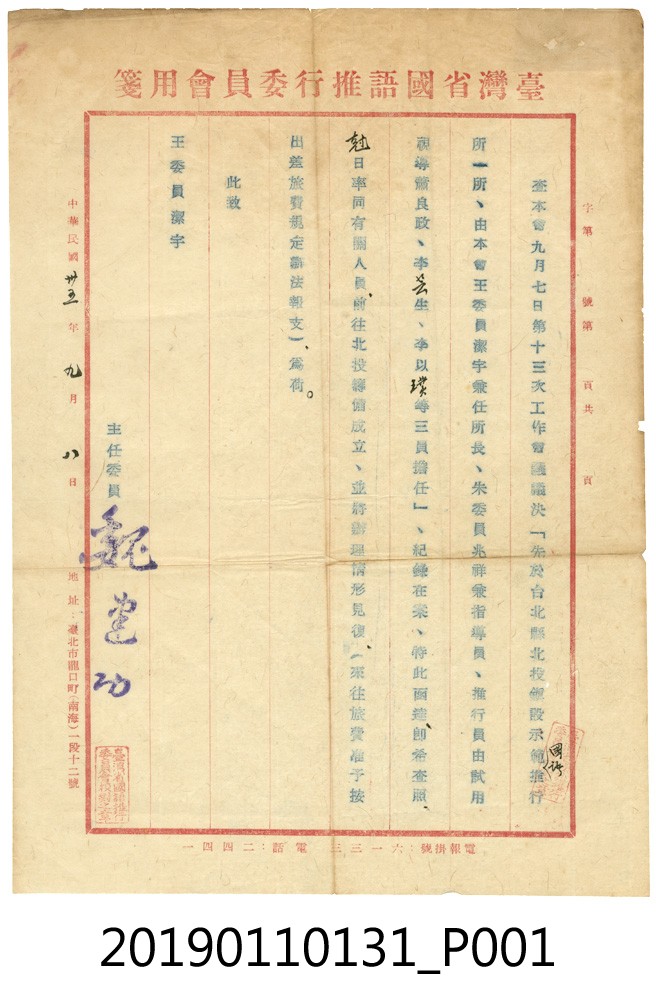 臺灣省國語推行委員會用箋
字第　號第　頁共　頁
查本會九月七日第十三次工作會議議決「先於台北縣北投鎮設示範國語推行
所一所、由本會王委員潔宇兼任所長、朱委員兆祥兼指導員、推行員由試用
視導蕭良政、李芸生、李以璞等三員擔任」、紀錄在案、特此函達、即希查照、
尅日率同有關人員、前往北投籌備成立、並將辦理情形見復、（來往旅費准予按
出差旅費規定辦法報支）、為荷。
此致
王委員潔宇
主任委員 魏建功
中華民國卅五年九月八日
地址：臺北市龍口町（南海）一段十二號
電報掛號：六一三三　電話：二四四一
20190110131_P001